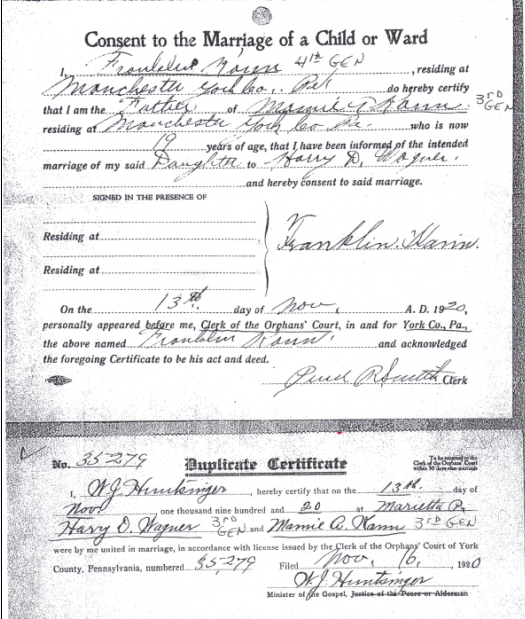 Consent to the Marriage of a Child or Ward
I, Franklin Kann 4th GEN, residing at
Manchester York Co., Pa do hereby certify
that I am the Father of Mamie A Kann 3RD GEN
residing at Manchester York Co Pa. who is now
19 years of age, that I have been informed of the intended
marriage of my said Daughter to Harry D. Wagner.
and hereby consent to said marriage.
SIGNED IN THE PRESENCE OF
Residing at
Franklin Kann.
Residing at
On the 13th day of Nov. A. D. 1920,
personally appeared before me, Clerk of the Orphans' Court, in and for York Co., Pa.,
the above named Franklin Kann and acknowledged
the foregoing Certificate to be his act and deed.
R Smith Clerk
No. 35279 Duplicate Certificate To be returned to the
Clerk of the Orphans' Court
within 30 days after marriage
I, W. J. Huntsinger, hereby certify that on the 13th. day of
Nov one thousand nine hundred and 20 at Marietta Pa.
Harry D. Wagner 3RD GEN and Mamie A. Kann 3RD GEN
were by me united in marriage, in accordance with license issued by the Clerk of the Orphans' Court of York
County, Pennsylvania, numbered 35279 Filed Nov, 16, 1920
W. J. Huntsinger
Minister of the Gospel, Justice of the Peace or Alderman